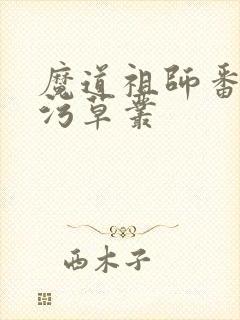 魔道祖師番
污草叢
西木子